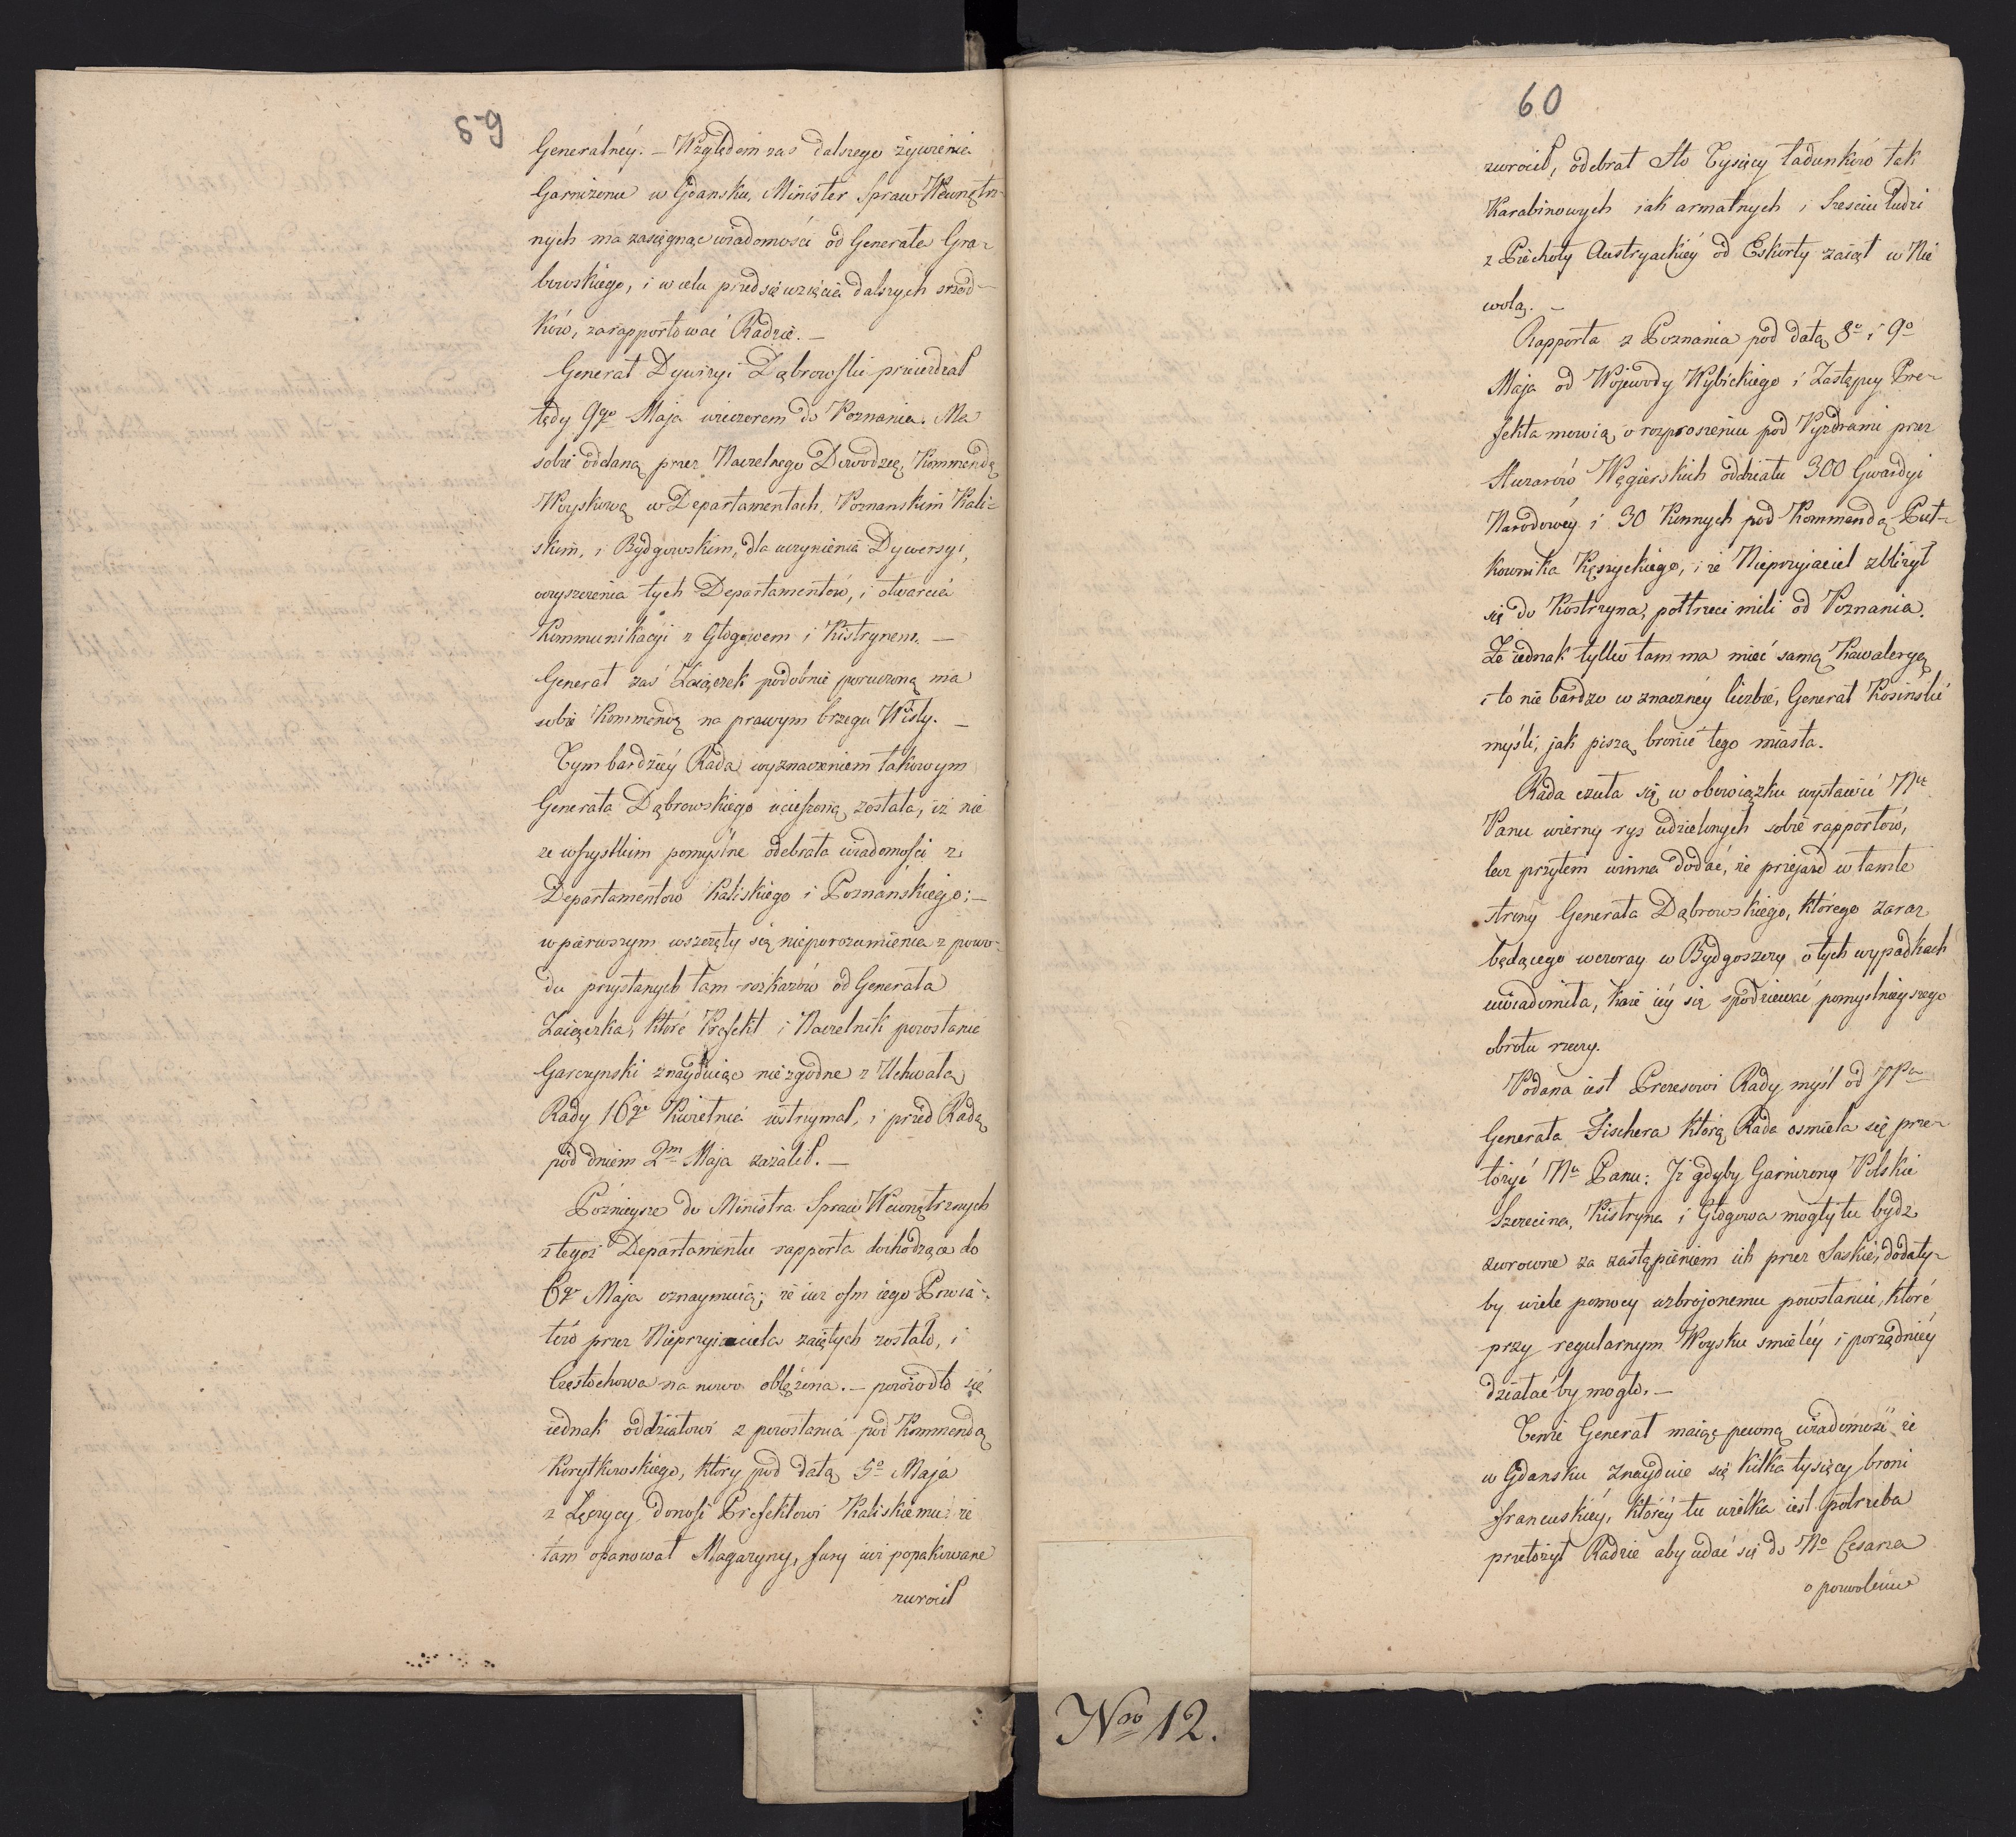 59
Generalnéy. – Względem zas dalszego żywienia
Garnizonu w Gdansku, Minister Spraw Wewnętrz-
nych ma zasięgnąc wiadomości od Generała Gra-
bowskiego, i w celu przedsięwzięcia dalszych srzod-
ków, zarapportować Radzie. –
Generał Dywizyi Dąbrowski przeiezdżał
tędy 9go Maja wieczorem do Poznania. Ma
sobie oddaną przez Naczelnego Dowodzcę, Kommendę
Woyskową w Departamentach, Poznanskim Kali-
skim, i Bydgowskim, dla uczynienia Dywersyi,
oczyszczenia tych Departamentów, i otwarcia
Kommunikacyi z Głogowem i Kistrynem. –
Generał zaś Zaiączek podobnie poruczoną ma
sobie Kommendę na prawym brzegu Wisły. –
Tym bardziéy Rada wyznaczeniem takowym
Generała Dąbrowskiego ucieszoną została, iż nie
ze wszystkim pomyślne odebrała wiadomości z
Departamentow Kaliskiego i Poznańskiego; –
w pierwszym wszczęły się nieporozumienia z powo-
du przysłanych tam rozkazów od Generała
Zaiączka, które Prefekt i Naczelnik powstania
Garczynski znayduiąc niezgodne z Uchwałą
Rady 16go Kwietnia wstrzymał, i przed Radą
pod dniem 2m Maja zażalił. –
Poźnieysze do Ministra Spraw Wewnętrznych
z tegoż Departamentu rapporta dochodzące do
6go Maja oznaymuią; że iuż ośm iego Powia-
tów przez Nieprzyiaciela zaiętych zostało, i
Częstochowa na nowo oblężona. – powiodło się
iednak oddziałowi z powstania pod Kommendą
Korytkowskiego, który pod datą 5o Maja
z Łęczycy, donosi Prefektowi Kaliskiemu: że
tam opanował Magazyny, fury iuż popakowane
zwrocił
60
zwrocił, odebrał Sto Tysięcy ładunków tak
Karabinowych iak armatnych i Szesciu ludzi
z Piechoty Austryackiéy od Eskorty zaiął w Nie
wolą. –
Rapporta z Poznania pod datą 8o i 9o
Maja od Wojewody Wybickiego i Zastępcy Pre-
fekta mowią o rozproszeniu pod Pyzdrami przez
Huzarów Węgierskich oddziału 300 Gwardyi
Narodowéy i 30 Konnych pod Kommendą Puł-
kownika Kęszyckiego, i że Nieprzyiaciel zbliżył
się do Kostrzyna, pół trzeci mili od Poznania.
Że iednak tylko tam ma mieć samą Kawaleryą
i to nie bardzo w znacznéy liczbie, Generał Kosiński
myśli, jak piszą bronić tego miasta.
Rada czuła się w obowiązku wystawić Nu
Panu wierny rys udzielonych sobie rapportów,
lecz przytem winna dodać, że przejazd w tamte
strony Generała Dąbrowskiego, którego zaraz
będącego wczoray w Bydgoszczy o tych wypadkach
uwiadomiła, każe iéy się spodziewać pomyślnieyszego
obrotu rzeczy.
Podana iest Prezesowi Rady myśl od JPa
Generała Fischera którą Rada osmiela się prze-
łożyć Nu Panu: Iż gdyby Garnizony Polskie
Szczecina, Kistryna i Głogowa mogły tu bydz
zwrocone za zastąpieniem ich przez Saskie, dodały-
by wiele pomocy uzbrojonemu powstaniu, które
przy regularnym Woysku smieléy i porządniéy
działać by mogło. –
Tenże Generał maiąc pewną wiadomość że
w Gdansku znayduie się kilka tysięcy broni
francuskiéy, któréy tu wielka iest potrzeba
przełożył Radzie aby udać się do No Cesarza
o pozwolenie
Nro 12.